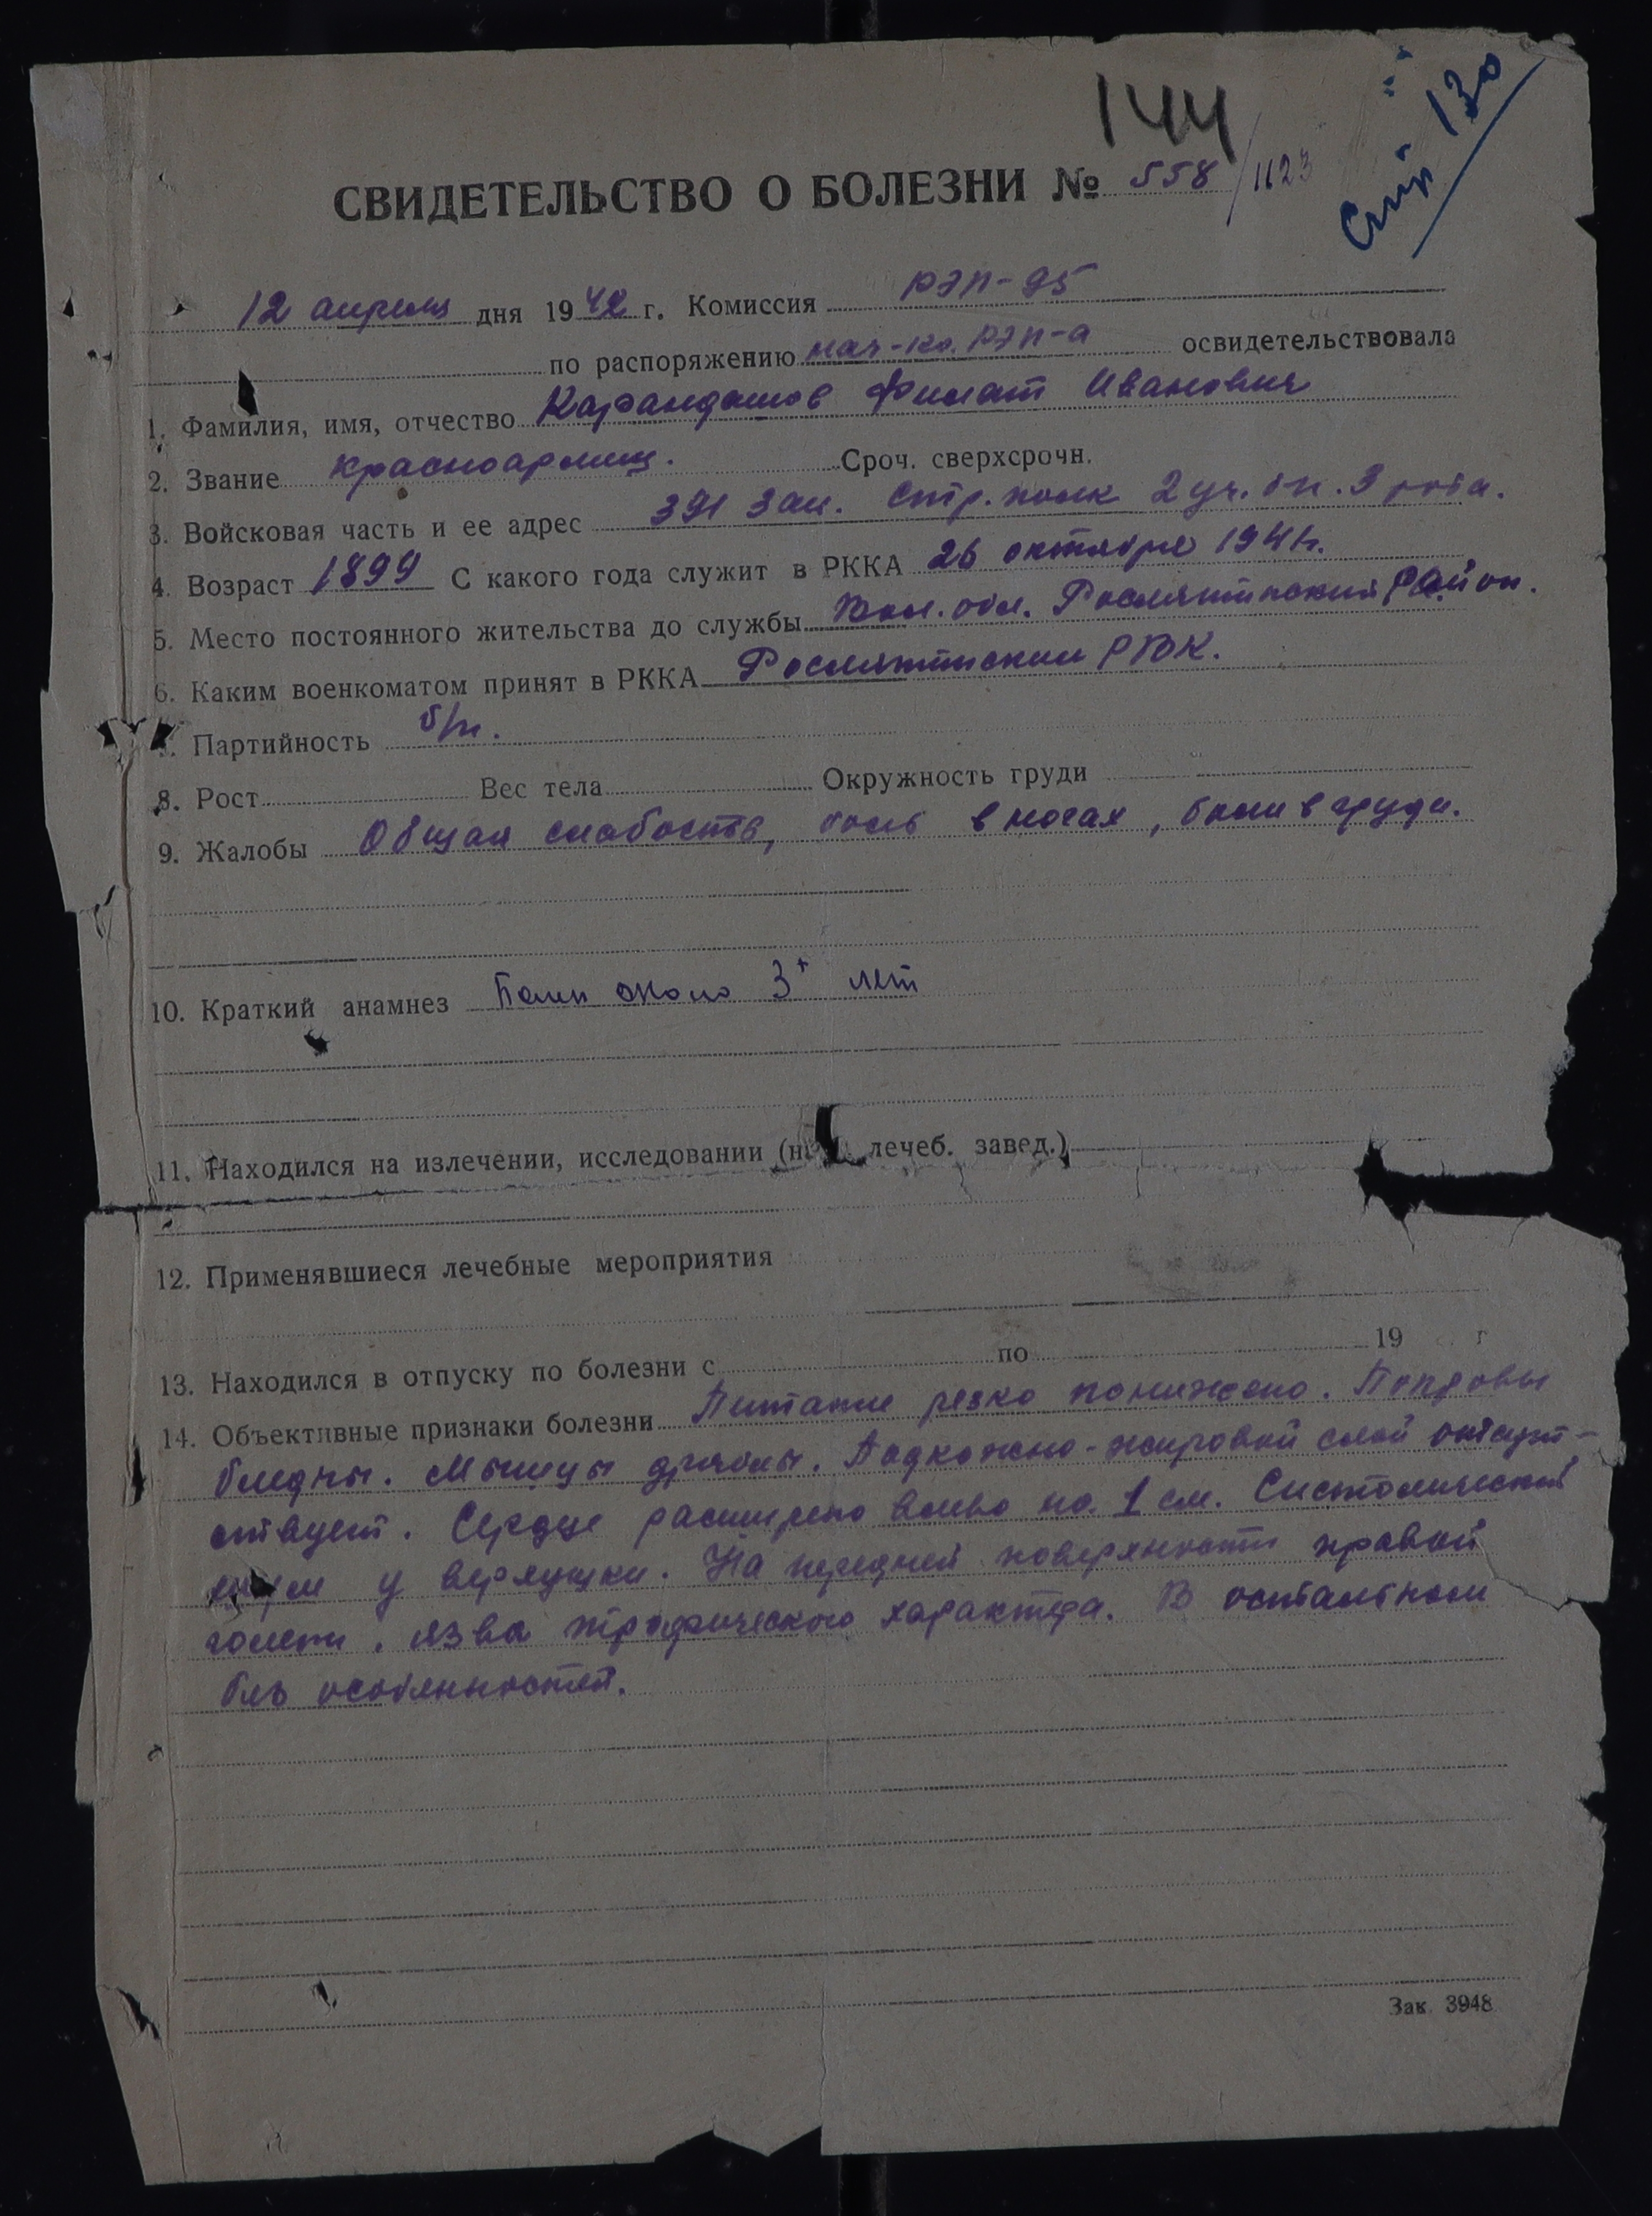 144
Стр 130
СВИДЕТЕЛЬСТВО О БОЛЕЗНИ № 558/1123
12 апреля дня 1942 г. Комиссия РЭП-95
по распоряжению нач-ка РЭП-а освидетельствовала
1. Фамилия, имя, отчество Карандашов Филат Иванович
2. Звание красноармеец. Сроч. сверхсрочн.
3. Войсковая часть и ее адрес 391 Зап. Стр. полк 2 уч. бн. 3 рота.
4. Возраст 1899 С какого года служит в РККА 26 октября 1941 г.
5. Место постоянного жительства до службы Вол. обл. Рослятинский район.
6. Каким военкоматом принят в РККА Рослятинским РВК.
Партийность б/п.
8. Рост Вес тела Окружность груди
9. Жалобы Общая слабость, боль в ногах, боли в груди.
10. Краткий анамнез Болен около 3х лет
11. Находился на излечении, исследовании (н лечеб. завед.)
12. Применявшиеся лечебные мероприятия
13. Находился в отпуску по болезни с по 19 г
14. Объективные признаки болезни Питание резко понижено. Покровы
бледны. Мышцы дряблы. Подкожно-жировой слой отсут-
ствует. Сердце расширено влево на 1 см. Систолический
шум у верхушки. На передней поверхности правой
голени, язва трофического характера. В остальном
без особенностей.
Зак. 3948